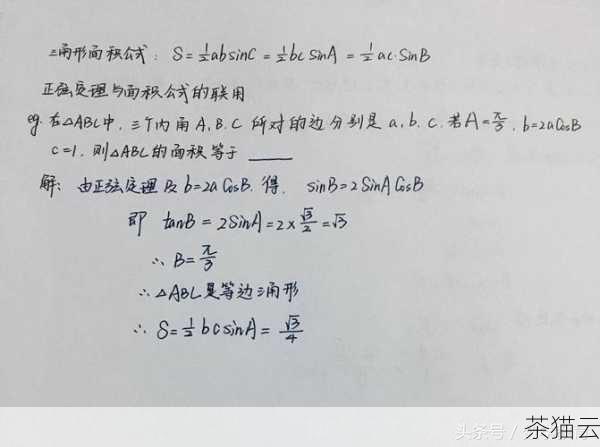 三角形面积公式：S=½absinC=½bcSinA=½ac·SinB
正弦定理与面积公式的联用
eg. 在△ABC中，三个内角A,B,C所对的边分别是a,b,c,若A=π/3,b=2aCosB
c=1,则△ABC的面积等于____
解：由正弦定理及b=2aCosB,得，sinB=2SinACosB
即 tanB=2SinA=2×√3/2=√3
∴B=π/3
∴△ABC是等边三角形
∴S=½bcsinA=√3/4
头条号/
茶猫云